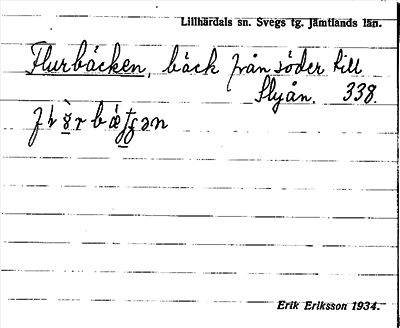 Lillhärdals sn. Svegs tg. Jämtlands län.
Flurbäcken, bäck från söder till
Slyån. 338.
Erik Eriksson 1934.